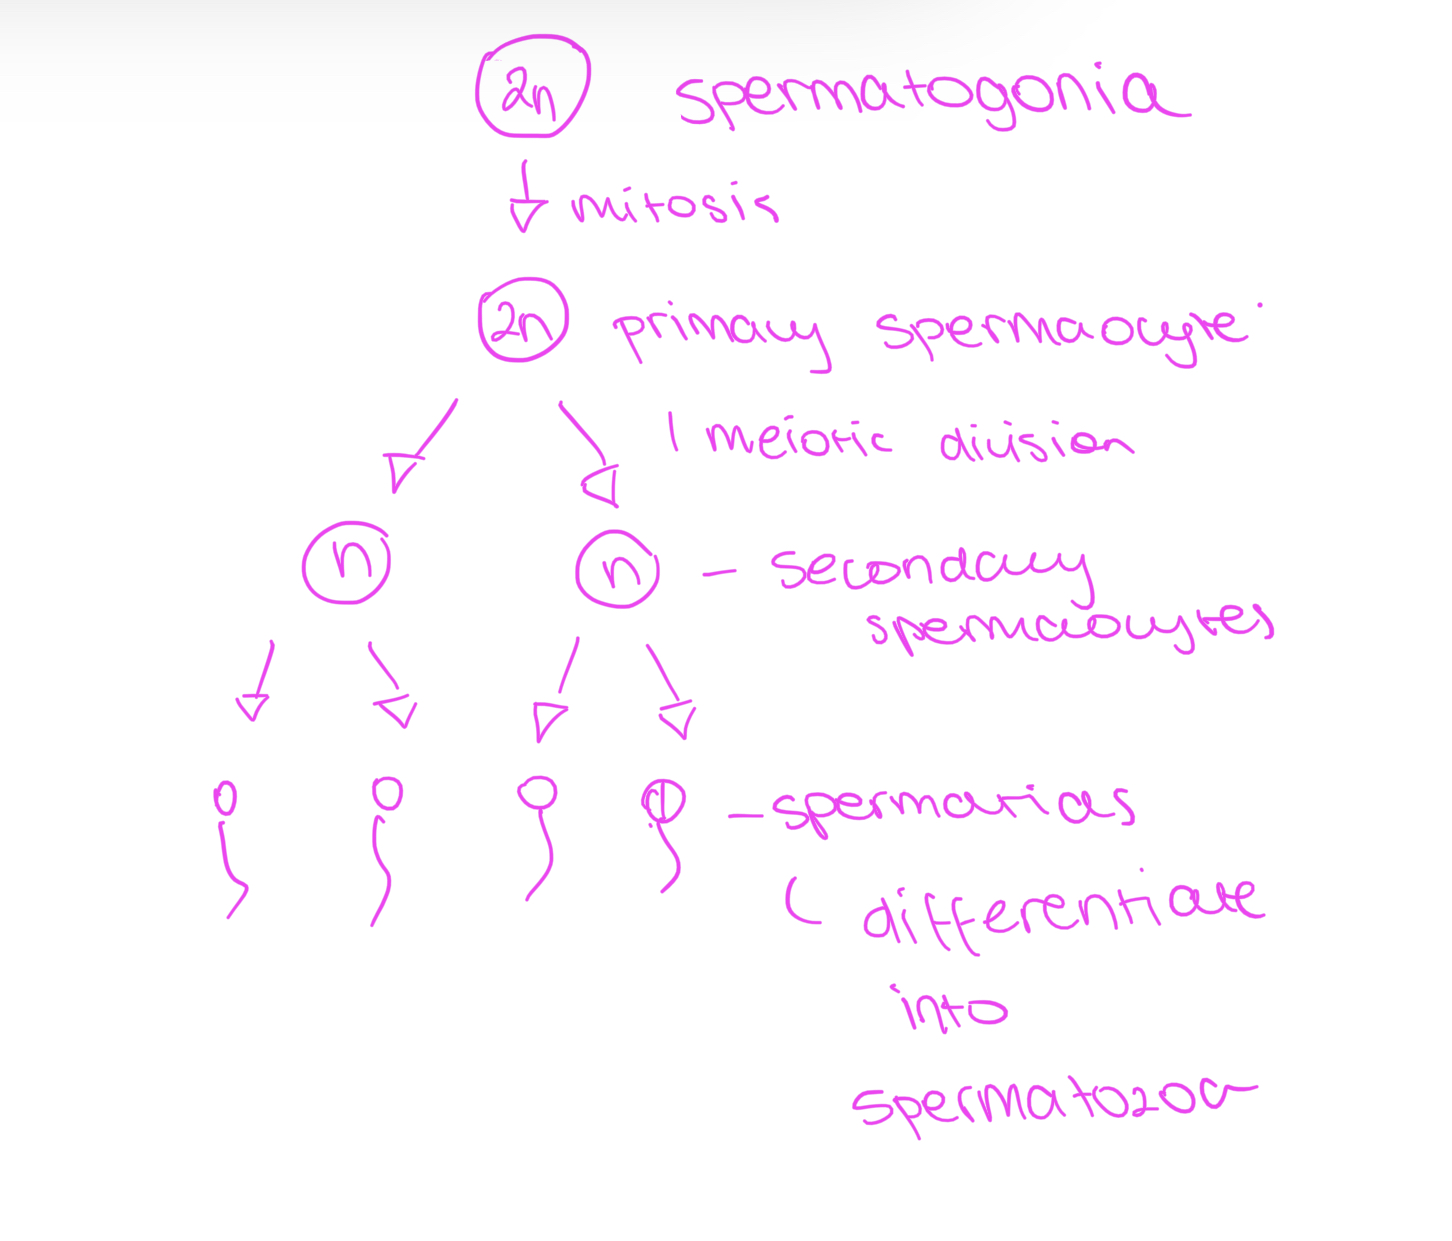 2n spermatogonia
mitosis
2n primary spermaocyte
1 meiotic division
n n - secondary
spermaocytes
- spermatids
differentiate
into
spermatozoa